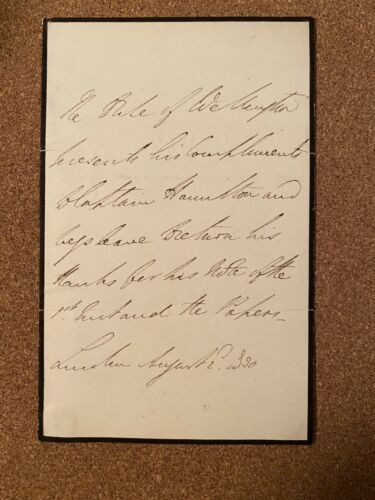 The Duke of Wellington
presents his Compliments
to Captain Hamilton and
begs leave to return his
thanks for his Note of the
1st Inst and the Papers.
London August 2d. 1830